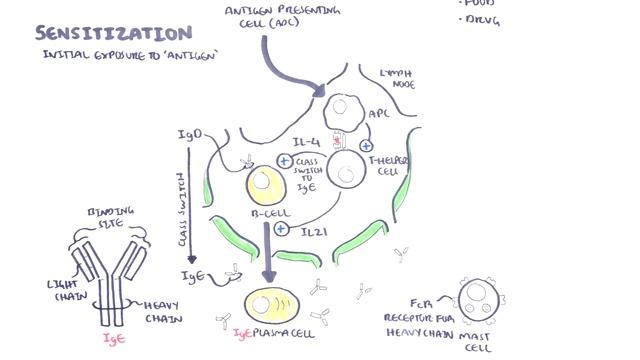 SENSITIZATION
INITIAL EXPOSURE TO 'ANTIGEN'
ANTIGEN PRESENTING
CELL (APC)
• FOOD
• DRUG
LYMPH
NODE
APC
IgD
IL-4
+
+
CLASS
SWITCH
TO
IgE
T-HELPER
CELL
CLASS SWITCH
B-CELL
+
IL21
BINDING
SITE
LIGHT
CHAIN
HEAVY
CHAIN
IgE
IgE
IgE PLASMA CELL
FCR
RECEPTOR FOR
HEAVY CHAIN
MAST
CELL